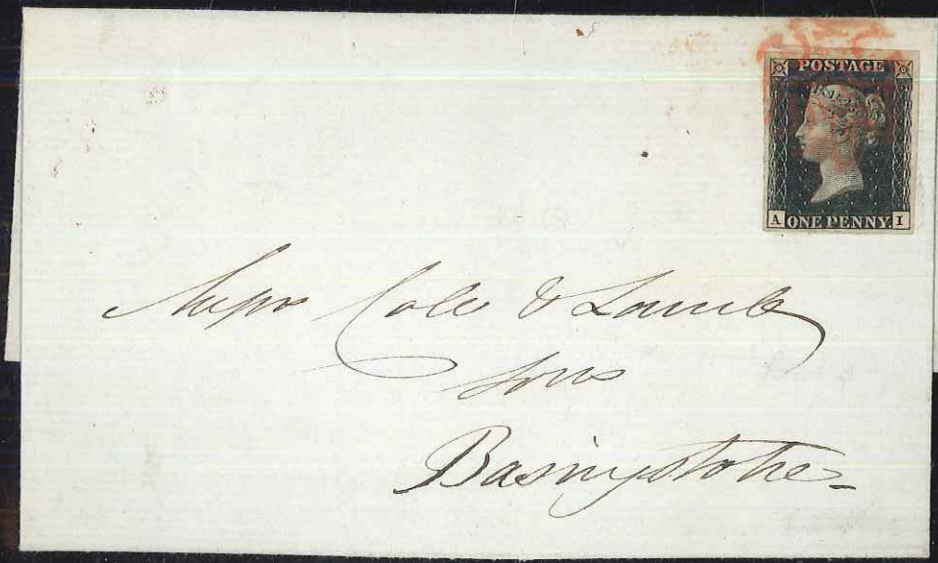 POSTAGE
A ONE PENNY. I
Messrs Cole & Lamb
Sons
Basingstoke